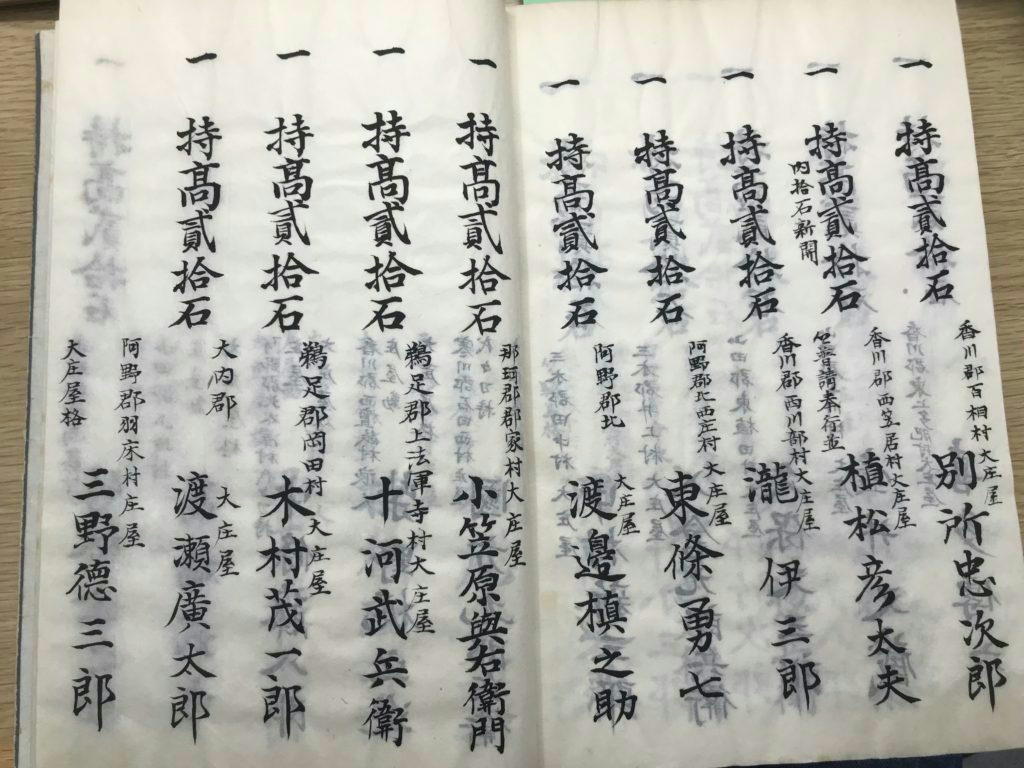 一 持高貳拾石
香川郡百相村大庄屋
別所忠次郎
一 持高貳拾石
内拾石新開
香川郡西笠居村大庄屋
植松彦太夫
一 持高貳拾石
普請奉行並
香川郡西川部村大庄屋
瀧伊三郎
一 持高貳拾石
阿野郡北西庄村大庄屋
東條勇七
一 持高貳拾石
阿野郡北
大庄屋
渡邉槙之助
一 持高貳拾石
那珂郡郡家村大庄屋
小笠原與右衛門
一 持高貳拾石
鵜足郡上法軍寺村大庄屋
十河武兵衛
一 持高貳拾石
鵜足郡岡田村大庄屋
木村茂一郎
一 持高貳拾石
大内郡
大庄屋
渡瀬廣太郎
阿野郡羽床村庄屋
大庄屋格
三野德三郎